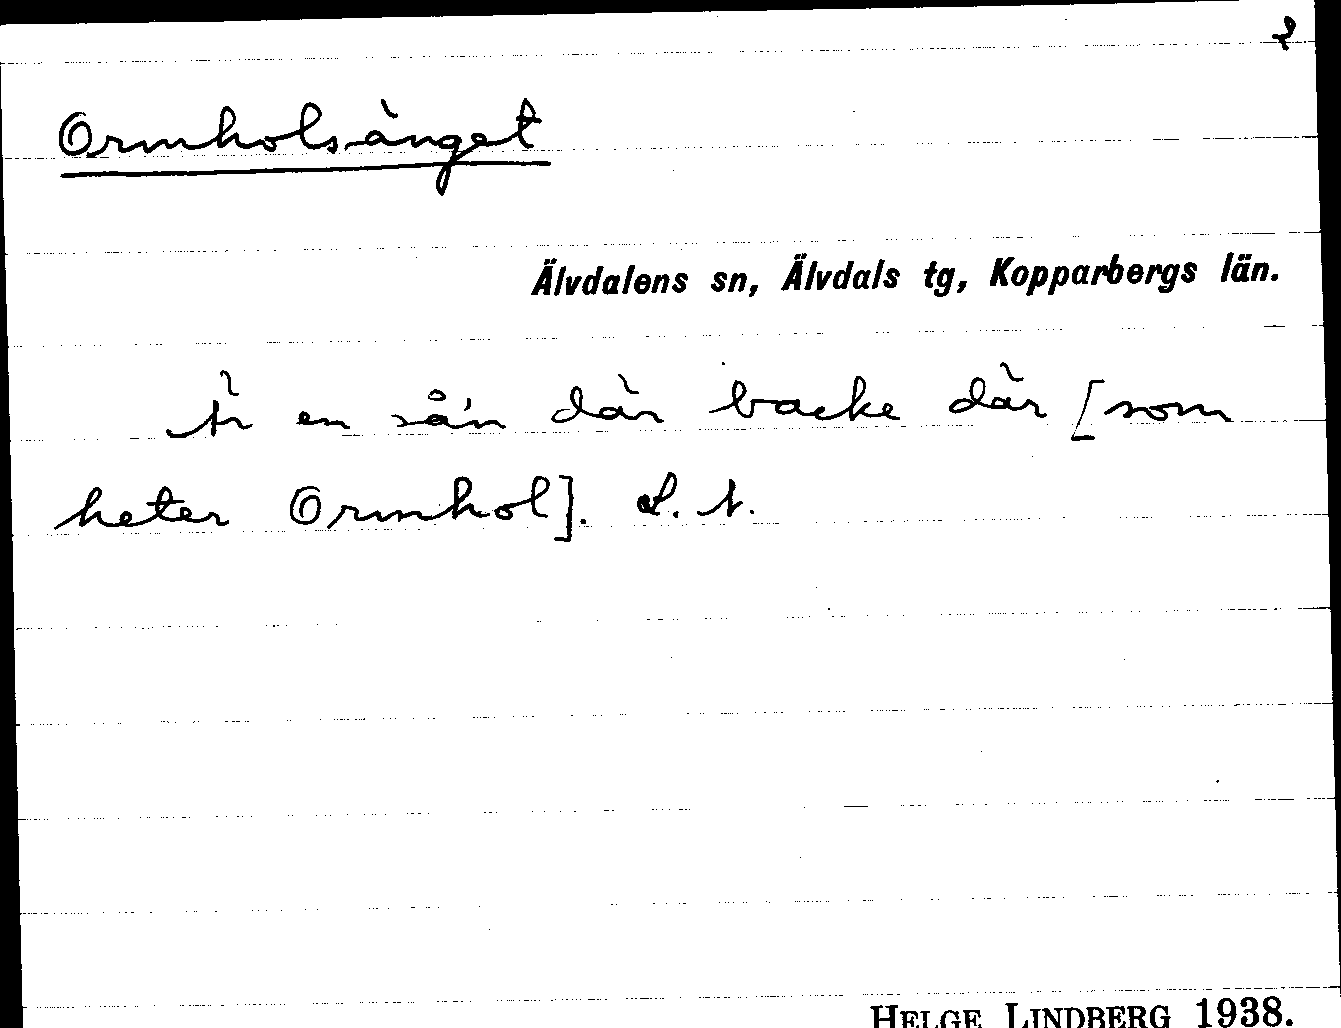 2
Ormholsänget
Älvdalens sn, Älvdals tg, Kopparbergs län.
Är en så'n där backe där [som
heter Ormhol]. L. A.
HELGE LINDBERG 1938.